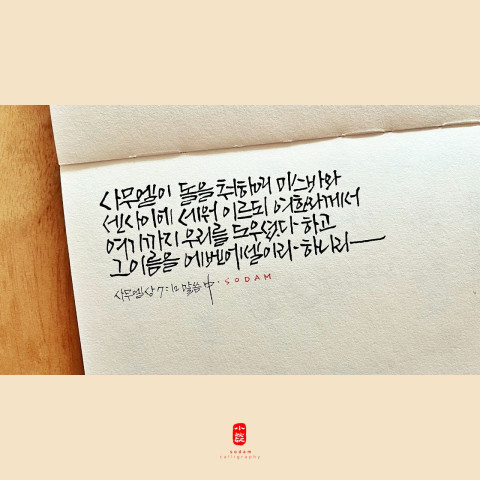 사무엘이 돌을 취하여 미스바와
센사이에 세워 이르되 여호와께서
여기까지 우리를 도우셨다 하고
그 이름을 에벤에셀이라 하니라
사무엘상 7:12 말씀 中 · SODAM
sodam
calligraphy